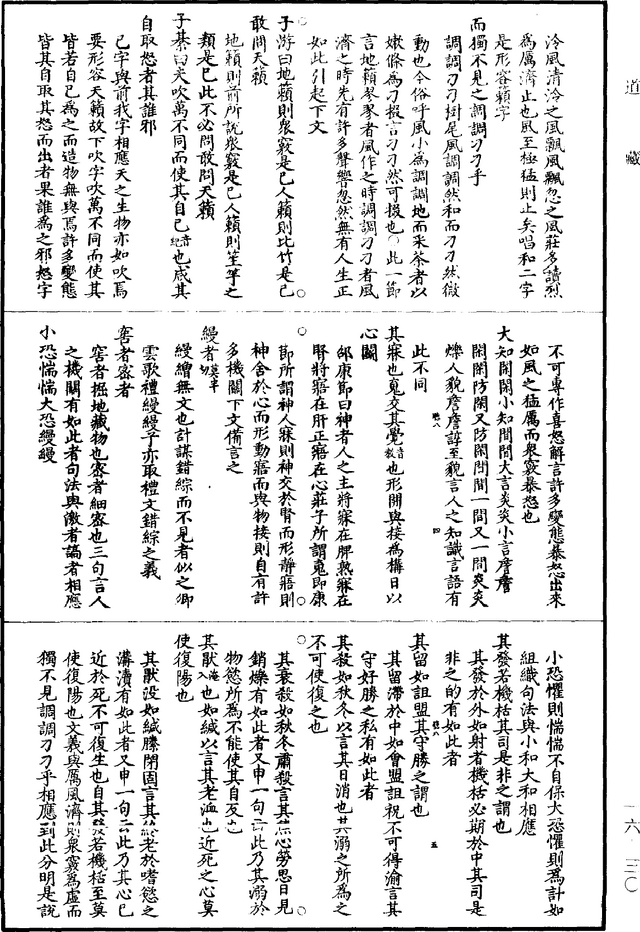 道藏
泠風清泠之風飄風飄忽之風莊多讀烈
為厲濟止也風至極猛則止矣唱和二字
是形容籟字
而獨不見之調調刁刁乎
調調刁刁樹尾風調調然和而刁刁然微
動也今俗呼風小為調調地而采茶者以
嫩條為刁掇言刁刁然可掇也○此一節
言地籟琴琴者風作之時調調刁刁者風
濟之時先有許多聲響忽然無有人生正
如此引起下文
子游曰地籟則眾竅是已人籟則比竹是已
敢問天籟
地籟則前所說眾竅是已人籟則笙竽之
類是已此不必問敢問天籟
子綦曰夫吹萬不同而使其自己音紀也咸其
自取怒者其誰邪
已字與前我字相應天之生物亦如吹焉
要形容天籟故下吹字吹萬不同而使其
皆若自已為之而造物無與焉許多變態
皆其自取其怒而出者果誰為之邪怒字
不可專作喜怒解言許多變態暴怒出來
如風之極厲而眾竅暴怒也
大知閑閑小知間間大言炎炎小言詹詹
閑閑防閑又防閑間間一間又一間炎炎
爍人貌詹詹諄至貌言人之知識言語有
此不同
其寐也䰟交其覺音教也形開與接為構日以
心鬭
邵康節曰神者人之主將寐在脾熟寐在
腎將寤在肝正寤在心莊子所謂䰟即康
節所謂神人寐則神交於腎而形靜寤則
神舍於心而形動寤而與物接則自有許
多機關下文備言之
縵者莫半切
縵繒無文也計謀錯綜而不見者似之卿
雲歌禮縵縵亦取禮文錯綜之義
窖者密者
窖者掘地藏物也密者細密也三句言人
之機關有如此者句法與激者謞者相應
小恐惴惴大恐縵縵
小恐懼則惴惴不自保大恐懼則為計如
組織句法與小和大和相應
其發若機栝其司是非之謂也
其發於外如射者機栝必期於中其司是
非之的有如此者
其留如詛盟其守勝之謂也
其留滯於中如會盟詛祝不可得渝言其
守好勝之私有如此者
其殺如秋冬以言其日消也其溺之所為之
不可使復之也
其衰殺如秋冬肅殺言其焦心勞思日見
銷爍有如此者又申一句云此乃其溺於
物慾所為不能使其自反也
其厭入淹也如緘以言其老洫也近死之心莫
使復陽也
其厭沒如緘縢閉固言其終老於嗜慾之
溝瀆有如此者又申一句云此乃其心已
近於死不可復生也自其發若機栝至莫
使復陽也文義與厲風濟則眾竅為虛而
獨不見調調刁刁乎相應到此分明是說
一六 三〇